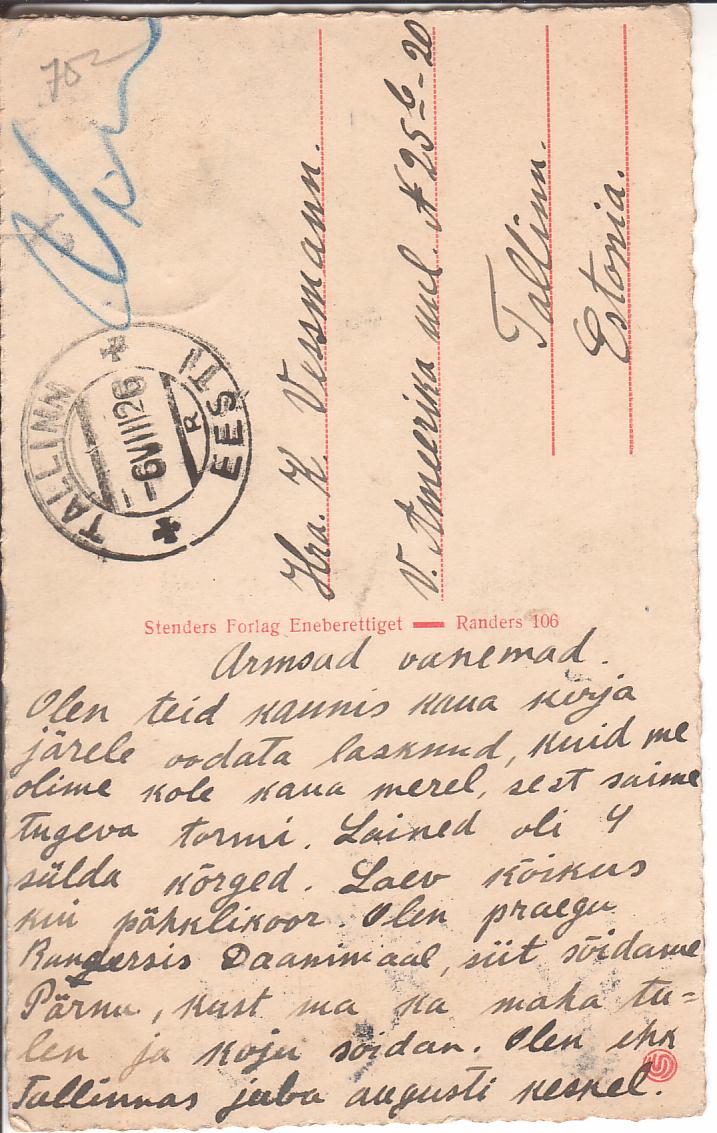 75
TALLINN
-6 VIII 26
R
EESTI
Hra. K. Vessmann.
V. Ameerika uul. № 25 b - 20
Tallinn.
Estonia.
Stenders Forlag Eneberettiget — Randers 106
Armsad vanemad.
Olen teid kaunis kaua kirja
järele oodata lasknud, kuid me
olime kole kaua merel, sest saime
tugeva tormi. Lained oli 4
sülda kõrged. Laev kõikus
kui pähklikoor. Olen praegu
Randersis Daanimaal, siit sõidame
Pärnu, kust ma ka maha tu=
len ja koju sõidan. Olen ehk
Tallinnas juba augusti keskel.